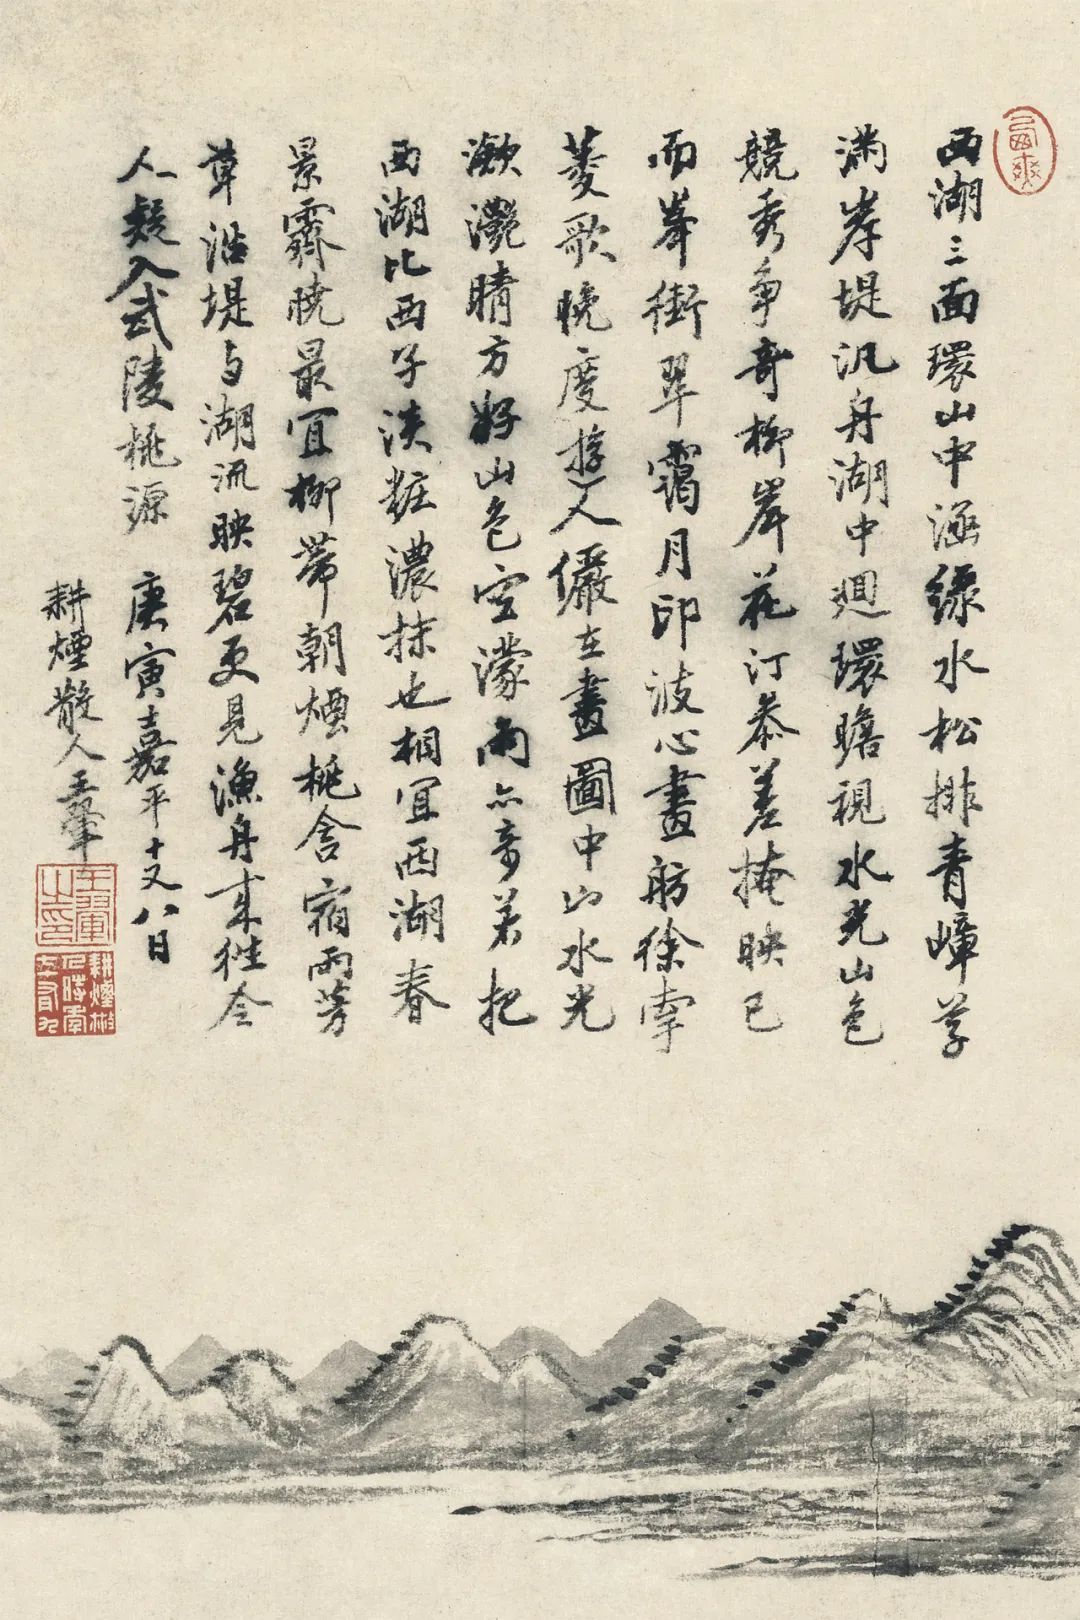 西湖三面環山中涵綠水松排青嶂草
滿岸堤汎舟湖中迴環瞻視水光山色
競秀爭奇柳岸花汀叅差掩映已
而峯銜翠靄月印波心畫舫徐牽
菱歌晚度游人儼在畫圖中山水光
瀲灔晴方好山色空濛雨亦奇若把
西湖比西子淡粧濃抹也相宜西湖春
景霽曉最宜柳帶朝煙桃含宿雨芳
草沿堤与湖流映碧更見漁舟来往令
人疑入武陵桃源 庚寅嘉平十又八日
耕煙散人王翬
王翬之印